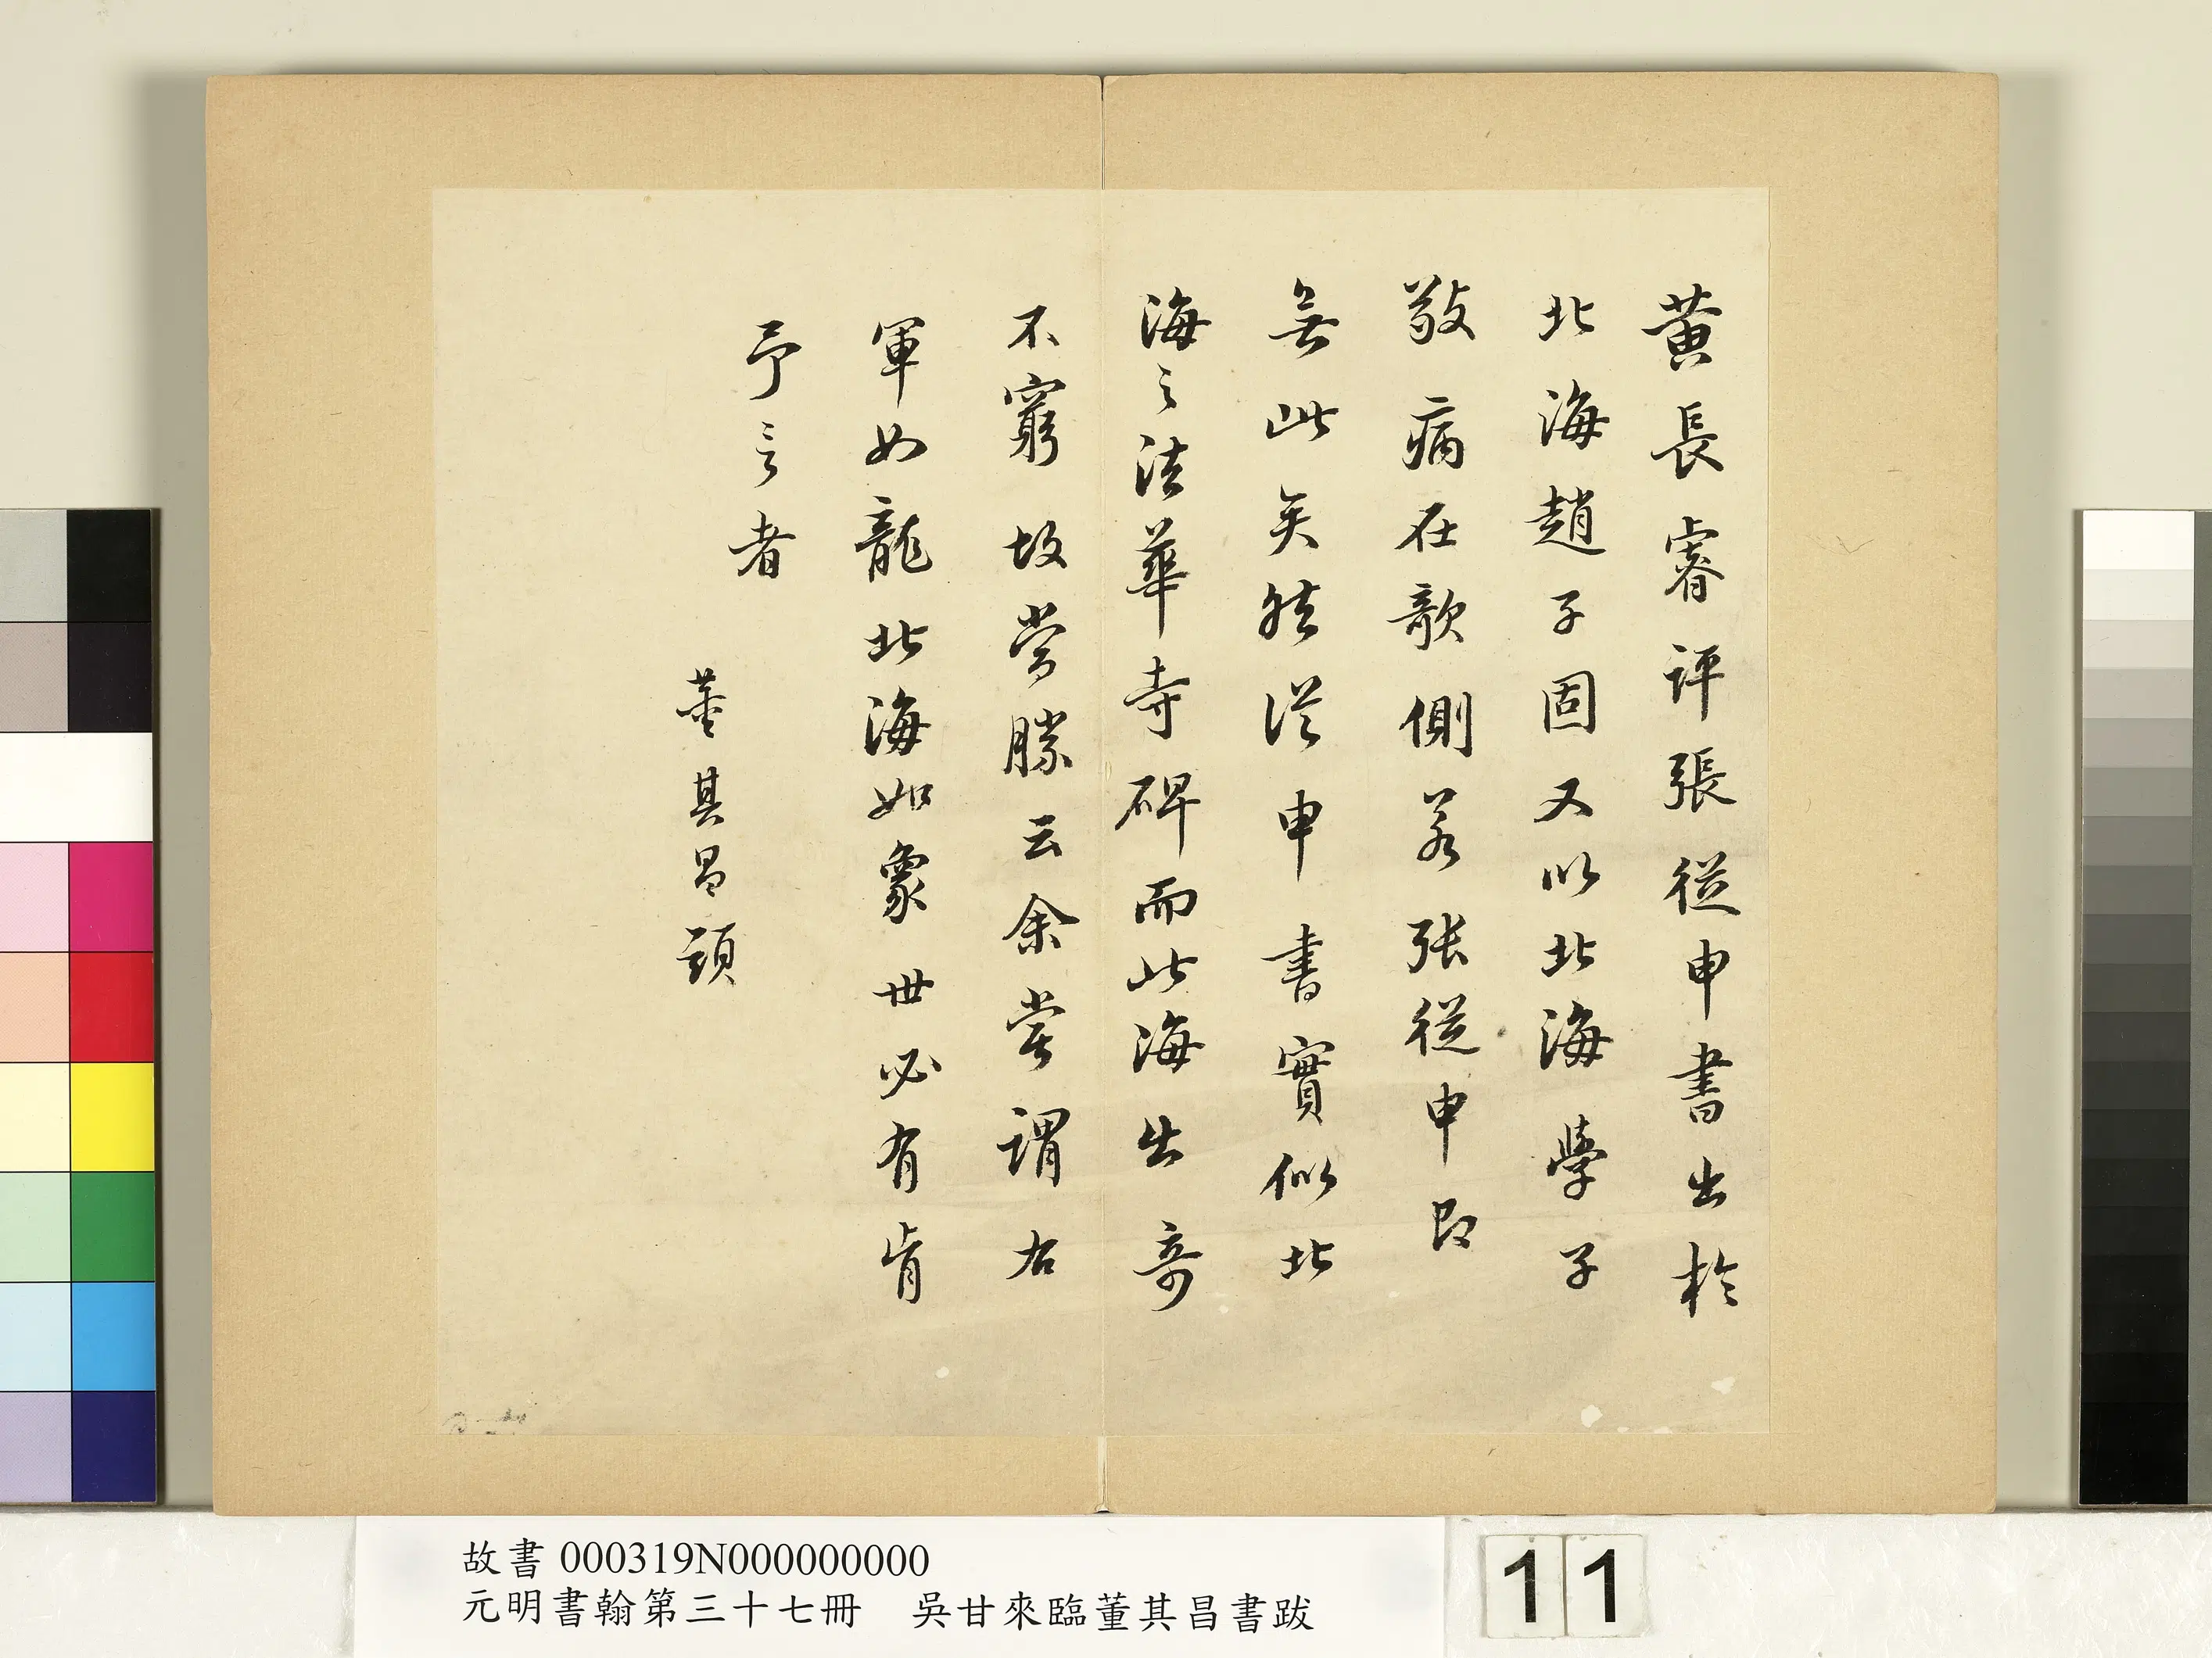 黃長睿評張從申書出於
北海趙子固又以北海學子
敬病在欹側若張從申即
無此矣然從申書實似北
海之法華寺碑而北海出奇
不窮故當勝云余嘗謂右
軍如龍北海如象世必有肯
予言者
董其昌題
故書 000319N000000000
元明書翰第三十七冊 吳甘來臨董其昌書跋
11